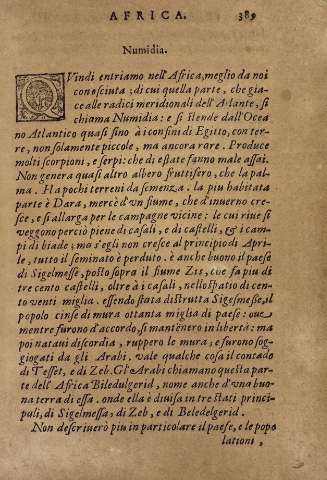 AFRICA. 389
Numidia.
QVindi entriamo nell'Africa, meglio da noi
conosciuta; di cui quella parte, che gia
ce alle radici meridionali dell'Atlante, si
chiama Numidia: e si stende dall'Ocea
no Atlantico quasi sino à i confini di Egitto, con ter-
re, non solamente piccole, ma ancora rare. Produce
molti scorpioni, e serpi: che di estate fanno male assai.
Non genera quasi altro albero fruttifero, che la pal-
ma. Ha pochi terreni da semenza. la piu habitata
parte è Dara, mercè d'vn fiume, che d'inuerno cre-
sce, e si allarga per le campagne vicine: le cui riue si
veggono perciò piene di casali, e di castelli, & i cam-
pi di biade; ma s'egli non cresce al principio di Apri-
le, tutto il seminato è perduto. è anche buono il paese
di Sigelmesse, posto sopra il fiume Zis, che fa piu di
tre cento castelli, oltre à i casali, nello spatio di cen-
to venti miglia. essendo stata distrutta Sigelmesse, il
popolo cinse di mura ottanta miglia di paese: oue
mentre furono d'accordo, si mantenero in libertà: ma
poi nataui discordia, ruppero le mura, e furono sog-
giogati da gli Arabi. vale qualche cosa il contado
di Tesset, e di Zeb. Gl'Arabi chiamano questa par-
te dell'Africa Biledulgerid, nome anche d'vna buo-
na terra di essa. onde ella è diuisa in tre stati princi-
pali, di Sigelmessa, di Zeb, e di Beledelgerid.
Non descriuerò piu in particolare il paese, e le popo
lationi,